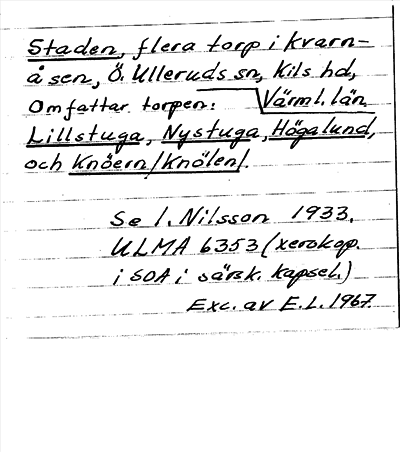 Staden, flera torp i Kvarn-
åsen, Ö. Ulleruds sn, Kils hd,
Omfattar torpen: Värml. län.
Lillstuga, Nystuga, Högalund,
och Knöern/Knölen/.
Se I. Nilsson 1933.
ULMA 6353 (xerokop.
i SOA i särsk. kapsel.)
Exc. av E.L. 1967.